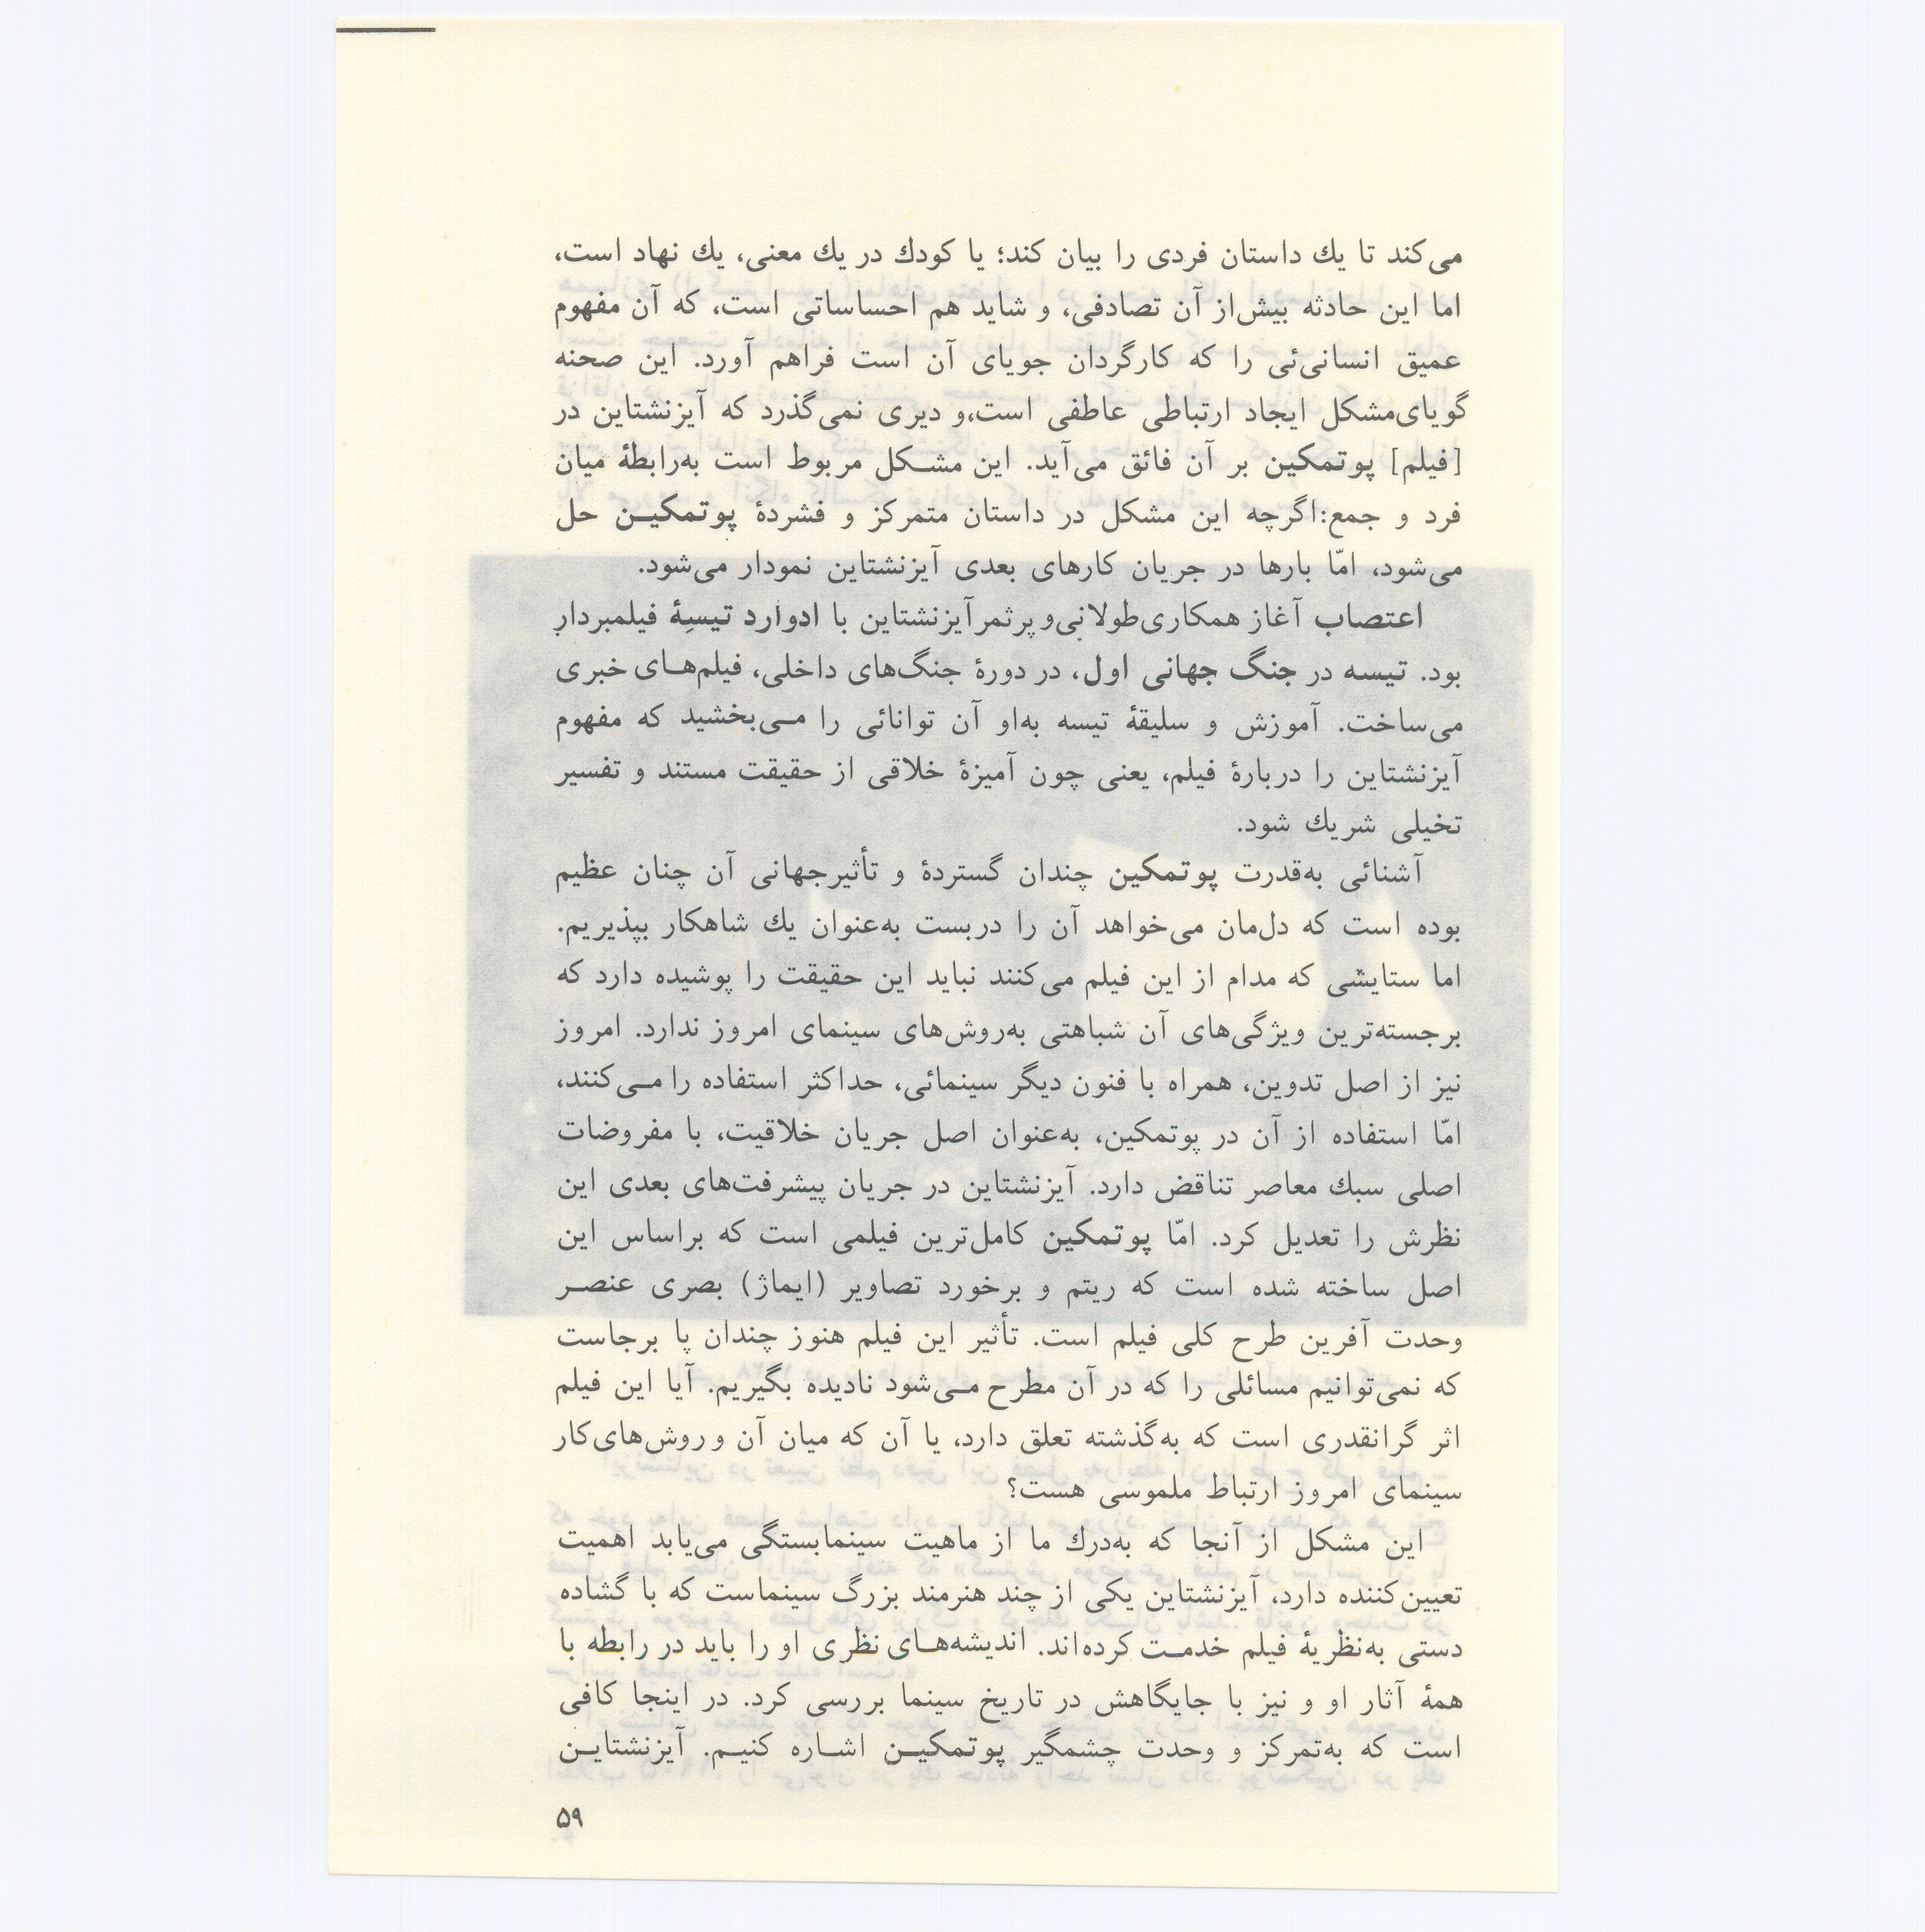 می‌کند تا یك داستان فردی را بیان کند؛ یا کودك در یك معنی، یك نهاد است،
اما این حادثه بیش‌از آن تصادفی، و شاید هم احساساتی است، که آن مفهوم
عمیق انسانی‌ئی را که کارگردان جویای آن است فراهم آورد. این صحنه
گویای‌مشکل ایجاد ارتباطی عاطفی است،و دیری نمی‌گذرد که آیزنشتاین در
[فیلم] پوتمکین بر آن فائق می‌آید. این مشـکل مربوط است به‌رابطهٔ میان
فرد و جمع:اگرچه این مشکل در داستان متمرکز و فشردهٔ پوتمکیـن حل
می‌شود، امّا بارها در جریان کارهای بعدی آیزنشتاین نمودار می‌شود.
اعتصاب آغاز همکاری‌طولانی‌و پرثمرآیزنشتاین با ادوارد تیسِهٔ فیلمبردارِ
بود. تیسه در جنگ جهانی اول، در دورهٔ جنگ‌های داخلی، فیلم‌هـای خبری
می‌ساخت. آموزش و سلیقهٔ تیسه به‌او آن توانائی را مـی‌بخشید که مفهوم
آیزنشتاین را دربارهٔ فیلم، یعنی چون آمیزهٔ خلاقی از حقیقت مستند و تفسیر
تخیلی شریك شود.
آشنائی به‌قدرت پوتمکین چندان گستردهٔ و تأثیرجهانی آن چنان عظیم
بوده است که دل‌مان می‌خواهد آن را دربست به‌عنوان یك شاهکار بپذیریم.
اما ستایشی که مدام از این فیلم می‌کنند نباید این حقیقت را پوشیده دارد که
برجسته‌ترین ویژگی‌های آن شباهتی به‌روش‌های سینمای امروز ندارد. امروز
نیز از اصل تدوین، همراه با فنون دیگر سینمائی، حداکثر استفاده را مـی‌کنند،
امّا استفاده از آن در پوتمکین، به‌عنوان اصل جریان خلاقیت، با مفروضات
اصلی سبك معاصر تناقض دارد. آیزنشتاین در جریان پیشرفت‌های بعدی این
نظرش را تعدیل کرد. امّا پوتمکین کامل‌ترین فیلمی است که براساس این
اصل ساخته شده است که ریتم و برخورد تصاویر (ایماژ) بصری عنصـر
وحدت آفرین طرح کلی فیلم است. تأثیر این فیلم هنوز چندان پا برجاست
که نمی‌توانیم مسائلی را که در آن مطرح مـی‌شود نادیده بگیریم. آیا این فیلم
اثر گرانقدری است که به‌گذشته تعلق دارد، یا آن که میان آن و روش‌های‌کار
سینمای امروز ارتباط ملموسی هست؟
این مشکل از آنجا که به‌درك ما از ماهیت سینمابستگی می‌یابد اهمیت
تعیین‌کننده دارد، آیزنشتاین یکی از چند هنرمند بزرگ سینماست که با گشاده
دستی به‌نظریهٔ فیلم خدمـت کرده‌اند. اندیشه‌هـای نظری او را باید در رابطه با
همهٔ آثار او و نیز با جایگاهش در تاریخ سینما بررسی کرد. در اینجا کافی
است که به‌تمرکز و وحدت چشمگیر پوتمکیـن اشـاره کنیـم. آیزنشتایـن
۵۹